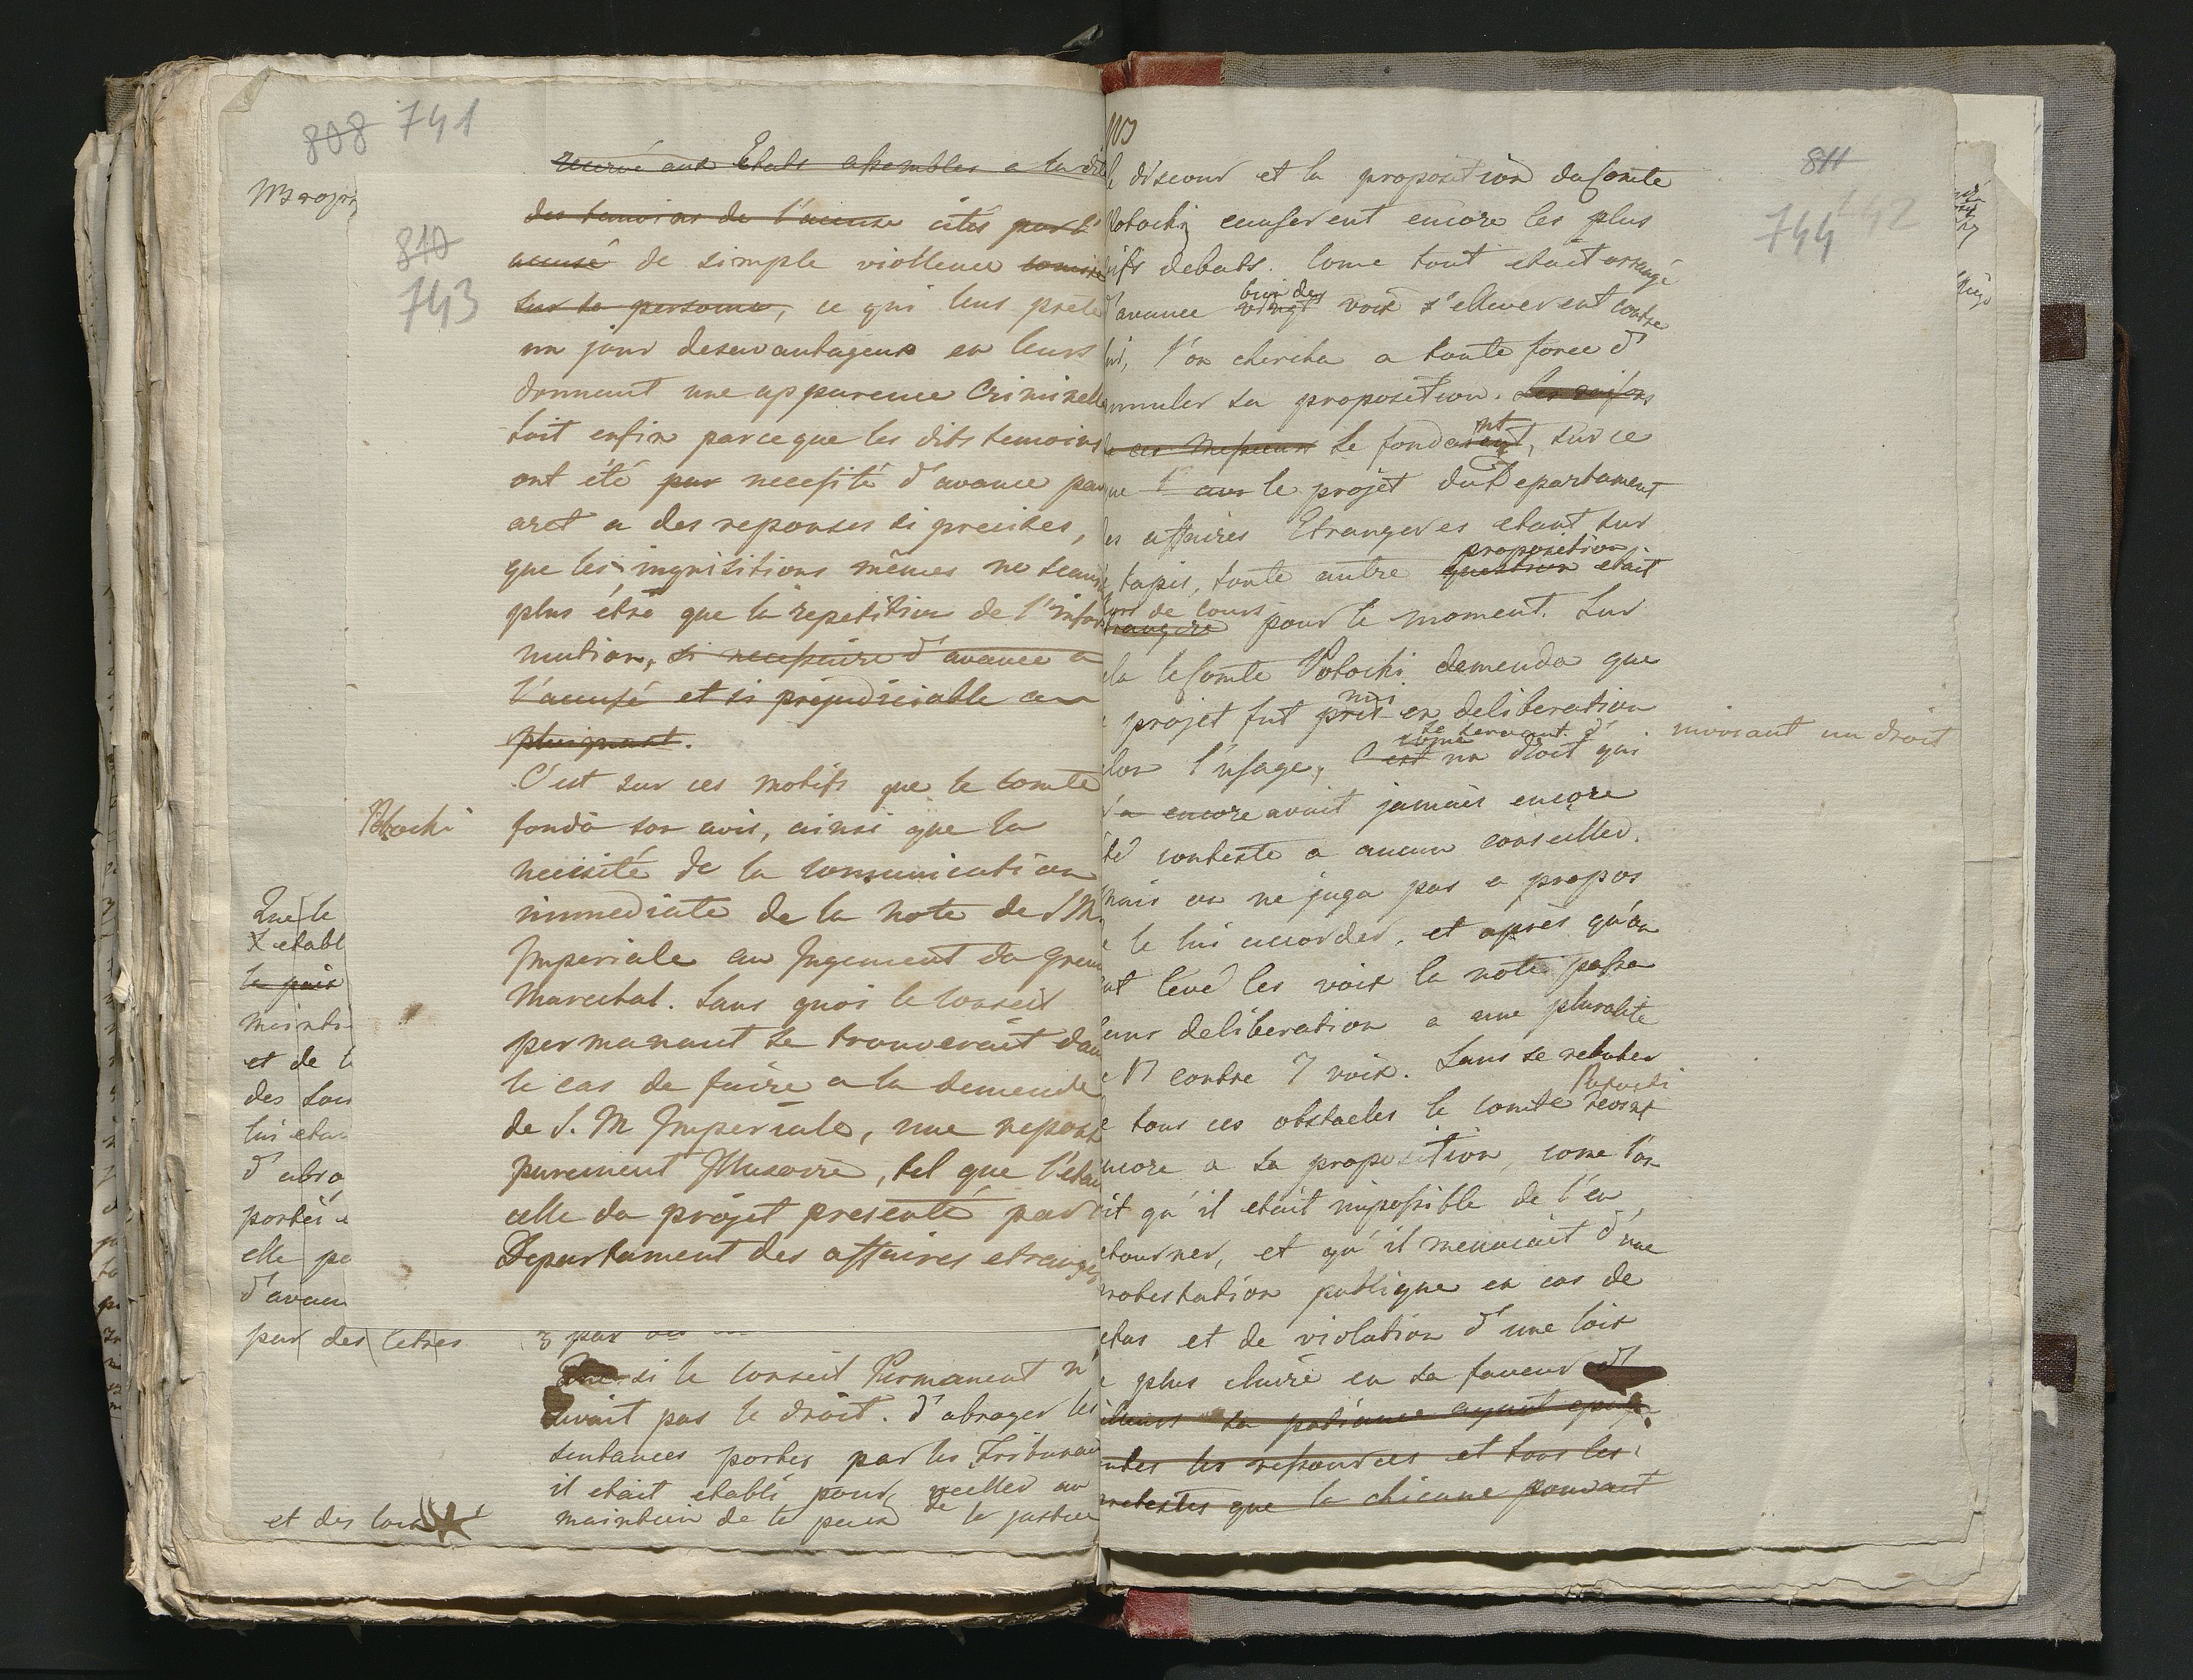 808 741
810
743
reservé aux Etats assembles a la di
des temoins de l'accuse cités par l'
accusé de simple viollence comise
sur sa persone, ce qui leus prete
un jour desavantageux en leurs
donnant une apparence Criminelle
soit enfin parceque les dits temoins
ont été par necesité d'avance par
aret a des reponses si precises,
que les inquisitions mêmes ne scauro
plus être que la repetition de l'infor
mation, si necessaire d'avance a
l'accusé et si prejudiciable au
plaignant.
C'est sur ces motifs que le comte
Potocki fonda son avis, ainsi que la
necesité de la comunication
immediate de la note de S M
Imperiale au Jugement du gran
Marechal. Sans quoi le Conseil
permanant se trouverait dan
le cas de faire a la demende
de S. M Imperiale, une repons
purement Illusoire, tel que l'etai
celle du projet presenté par
Departament des affaires etranger
Que le
X etabl
la paix
mainti
et de l
des Lou
lui etan
d'abro
portés
elle pe
d'avan
par des letres
3 par
si le Conseil Permanent n'
avait pas le droit. d'abroger les
sentances portes par les Tribunau
il etait etabli pour veiller au
maintien de la paix de la justice
et des loix
811
744 742
le discour et la proposition du Comte
Potocki causerent encore les plus
vifs debats. Come tout etait arrangé
d'avance vingt bien des voix s'elleverent contre
lui, l'on chercha a toute force d'
annuler sa proposition. Les raisons
de ces Messieurs se fondant, sur ce
que l'  le projet du Departament
des affaires Etrangeres etant sur
le tapis, toute autre question proposition etait
hors de cours etrangere pour le moment. Sur
cela le Comte Potocki demenda que
le projet fut pris mis en deliberation
selon l'usage, c'est come se servant d' un droit qui
n'a encore avait jamais encore
été conteste a aucun conseiller.
invocant un droit
Mais on ne juga pas a propos
de le lui accorder, et apres qu'on
eut levé les voix la note passa
sans deliberation a une pluralité
de 17 contre 7 voix. Sans se rebuter
de tous ces obstacles le comte Potocki revint
encore a sa proposition, come l'on
vit qu'il etait impossible de l'en
detourner, et qu'il menacait d'une
protestation publique en cas de
refus et de violation d'une loix
la plus claire en sa faveur et
ailleurs sa patiance ayant epuisé
toutes les ressources et tous les
pretextes que la chicane pouvait